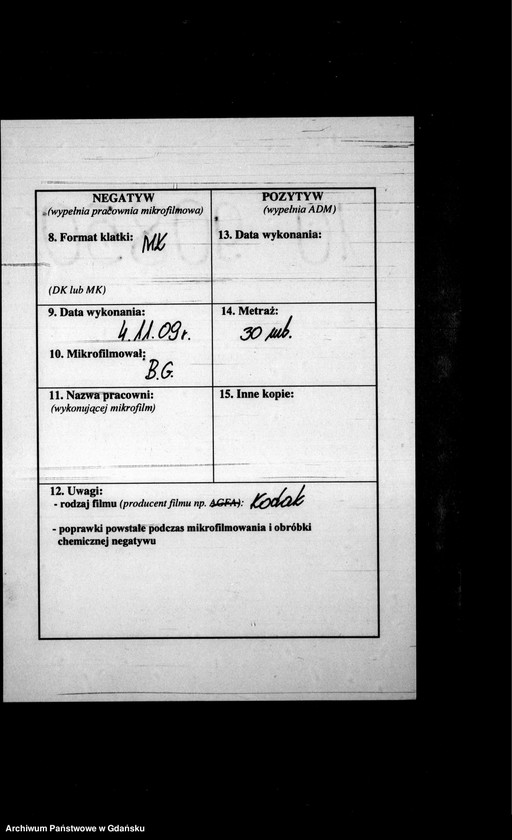 NEGATYW
(wypełnia pracownia mikrofilmowa)
8. Format klatki: MK
(DK lub MK)
9. Data wykonania:
4.11.09r.
10. Mikrofilmował:
B.G.
11. Nazwa pracowni:
(wykonującej mikrofilm)
POZYTYW
(wypełnia ADM)
13. Data wykonania:
14. Metraż:
30 mb.
15. Inne kopie:
12. Uwagi:
- rodzaj filmu (producent filmu np. AGFA): Kodak
- poprawki powstałe podczas mikrofilmowania i obróbki
chemicznej negatywu
Archiwum Państwowe w Gdańsku